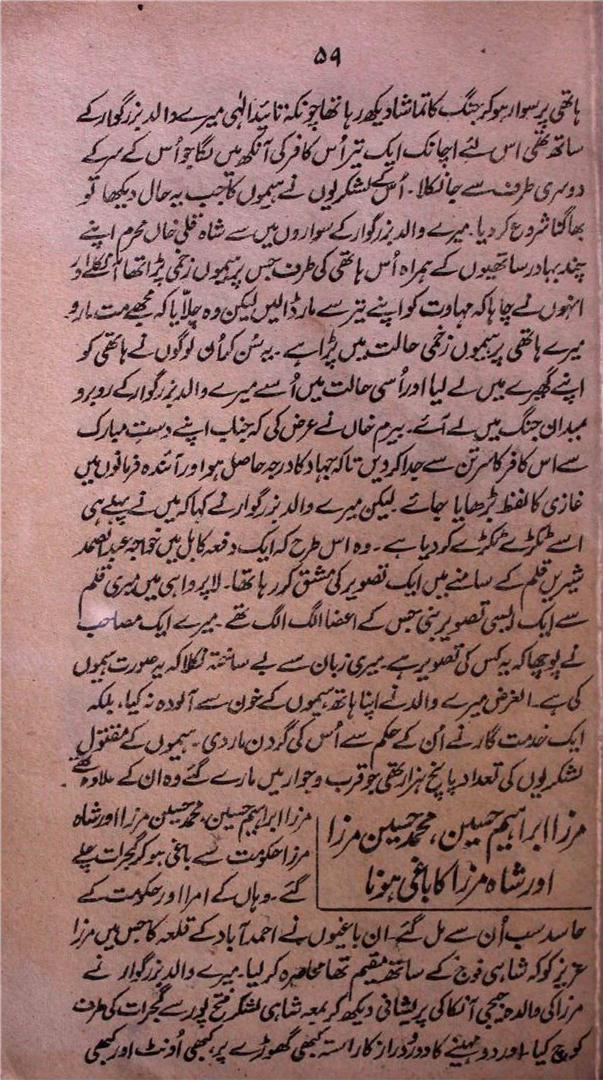 ۵۹
ہاتھی پر سوار ہو کر جنگ کا تماشا دیکھ رہا تھا چونکہ تائید الٰہی میرے والد بزرگوار کے
ساتھ تھی اس لئے اچانک ایک تیر اُس کافر کی آنکھ میں لگا جو اُس کے سر کے
دوسری طرف سے جا نکلا۔ اُس کے لشکریوں نے ہیموں کا جب یہ حال دیکھا تو
بھاگنا شروع کر دیا۔ میرے والد بزرگوار کے سواروں میں سے شاہ قلی خاں محرم اپنے
چند بہادر ساتھیوں کے ہمراہ اُس ہاتھی کی طرف جس پر ہیموں زخمی پڑا تھا آ نکلا اور
انہوں نے چاہا کہ مہاوت کو اپنے تیر سے مار ڈالیں لیکن وہ چلایا کہ مجھے مت مارو
میرے ہاتھی پر ہیموں زخمی حالت میں پڑا ہے۔ یہ سُن کر اُن لوگوں نے ہاتھی کو
اپنے گھیرے میں لے لیا اور اُسی حالت میں اُسے میرے والد بزرگوار کے روبرو
میدان جنگ میں لے آئے۔ بیرم خاں نے عرض کی کہ جناب اپنے دست مبارک
سے اس کافر کا سر تن سے جدا کر دیں تاکہ جہاد کا درجہ حاصل ہو اور آئندہ فرمانوں میں
غازی کا لفظ بڑھایا جائے۔ لیکن میرے والد بزرگوار نے کہا کہ میں نے پہلے ہی
اسے ٹکڑے ٹکڑے کر دیا ہے۔ وہ اس طرح کہ ایک دفعہ کابل میں خواجہ عبدالصمد
شیریں قلم کے سامنے میں ایک تصویر کی مشق کر رہا تھا۔ لاپرواہی میں میری قلم
سے ایک ایسی تصویر بنی جس کے اعضا الگ الگ تھے۔ میرے ایک مصاحب
نے پوچھا کہ یہ کس کی تصویر ہے۔ میری زبان سے بے ساختہ نکلا کہ یہ صورت ہیموں
کی ہے۔ الغرض میرے والد نے اپنا ہاتھ ہیموں کے خون سے آلودہ نہ کیا، بلکہ
ایک خدمت گار نے اُن کے حکم سے اُس کی گردن مار دی۔ ہیموں کے مقتول
لشکریوں کی تعداد پانچ ہزار تھی جو قرب وجوار میں مارے گئے وہ ان کے علاوہ تھے۔
مرزا ابراہیم حسین، محمد حسین مرزا
اور شاہ مرزا کا باغی ہونا
مرزا ابراہیم حسین، محمد حسین مرزا اور شاہ
مرزا حکومت سے باغی ہو کر گجرات چلے
گئے۔ وہاں کے امرا اور حکومت کے
حاسد سب اُن سے مل گئے۔ ان باغیوں نے احمد آباد کے قلعہ کا جس میں مرزا
عزیز کوکہ شاہی فوج کے ساتھ مقیم تھا محاصرہ کر لیا۔ میرے والد بزرگوار نے
مرزا کی والدہ جیجی آنکا کی پریشانی دیکھ کر بمعہ شاہی لشکر فتح پور سے گجرات کی طرف
کوچ کیا۔ اور دو مہینے کا دور دراز کا راستہ کبھی گھوڑے پر، کبھی اُونٹ اور کبھی